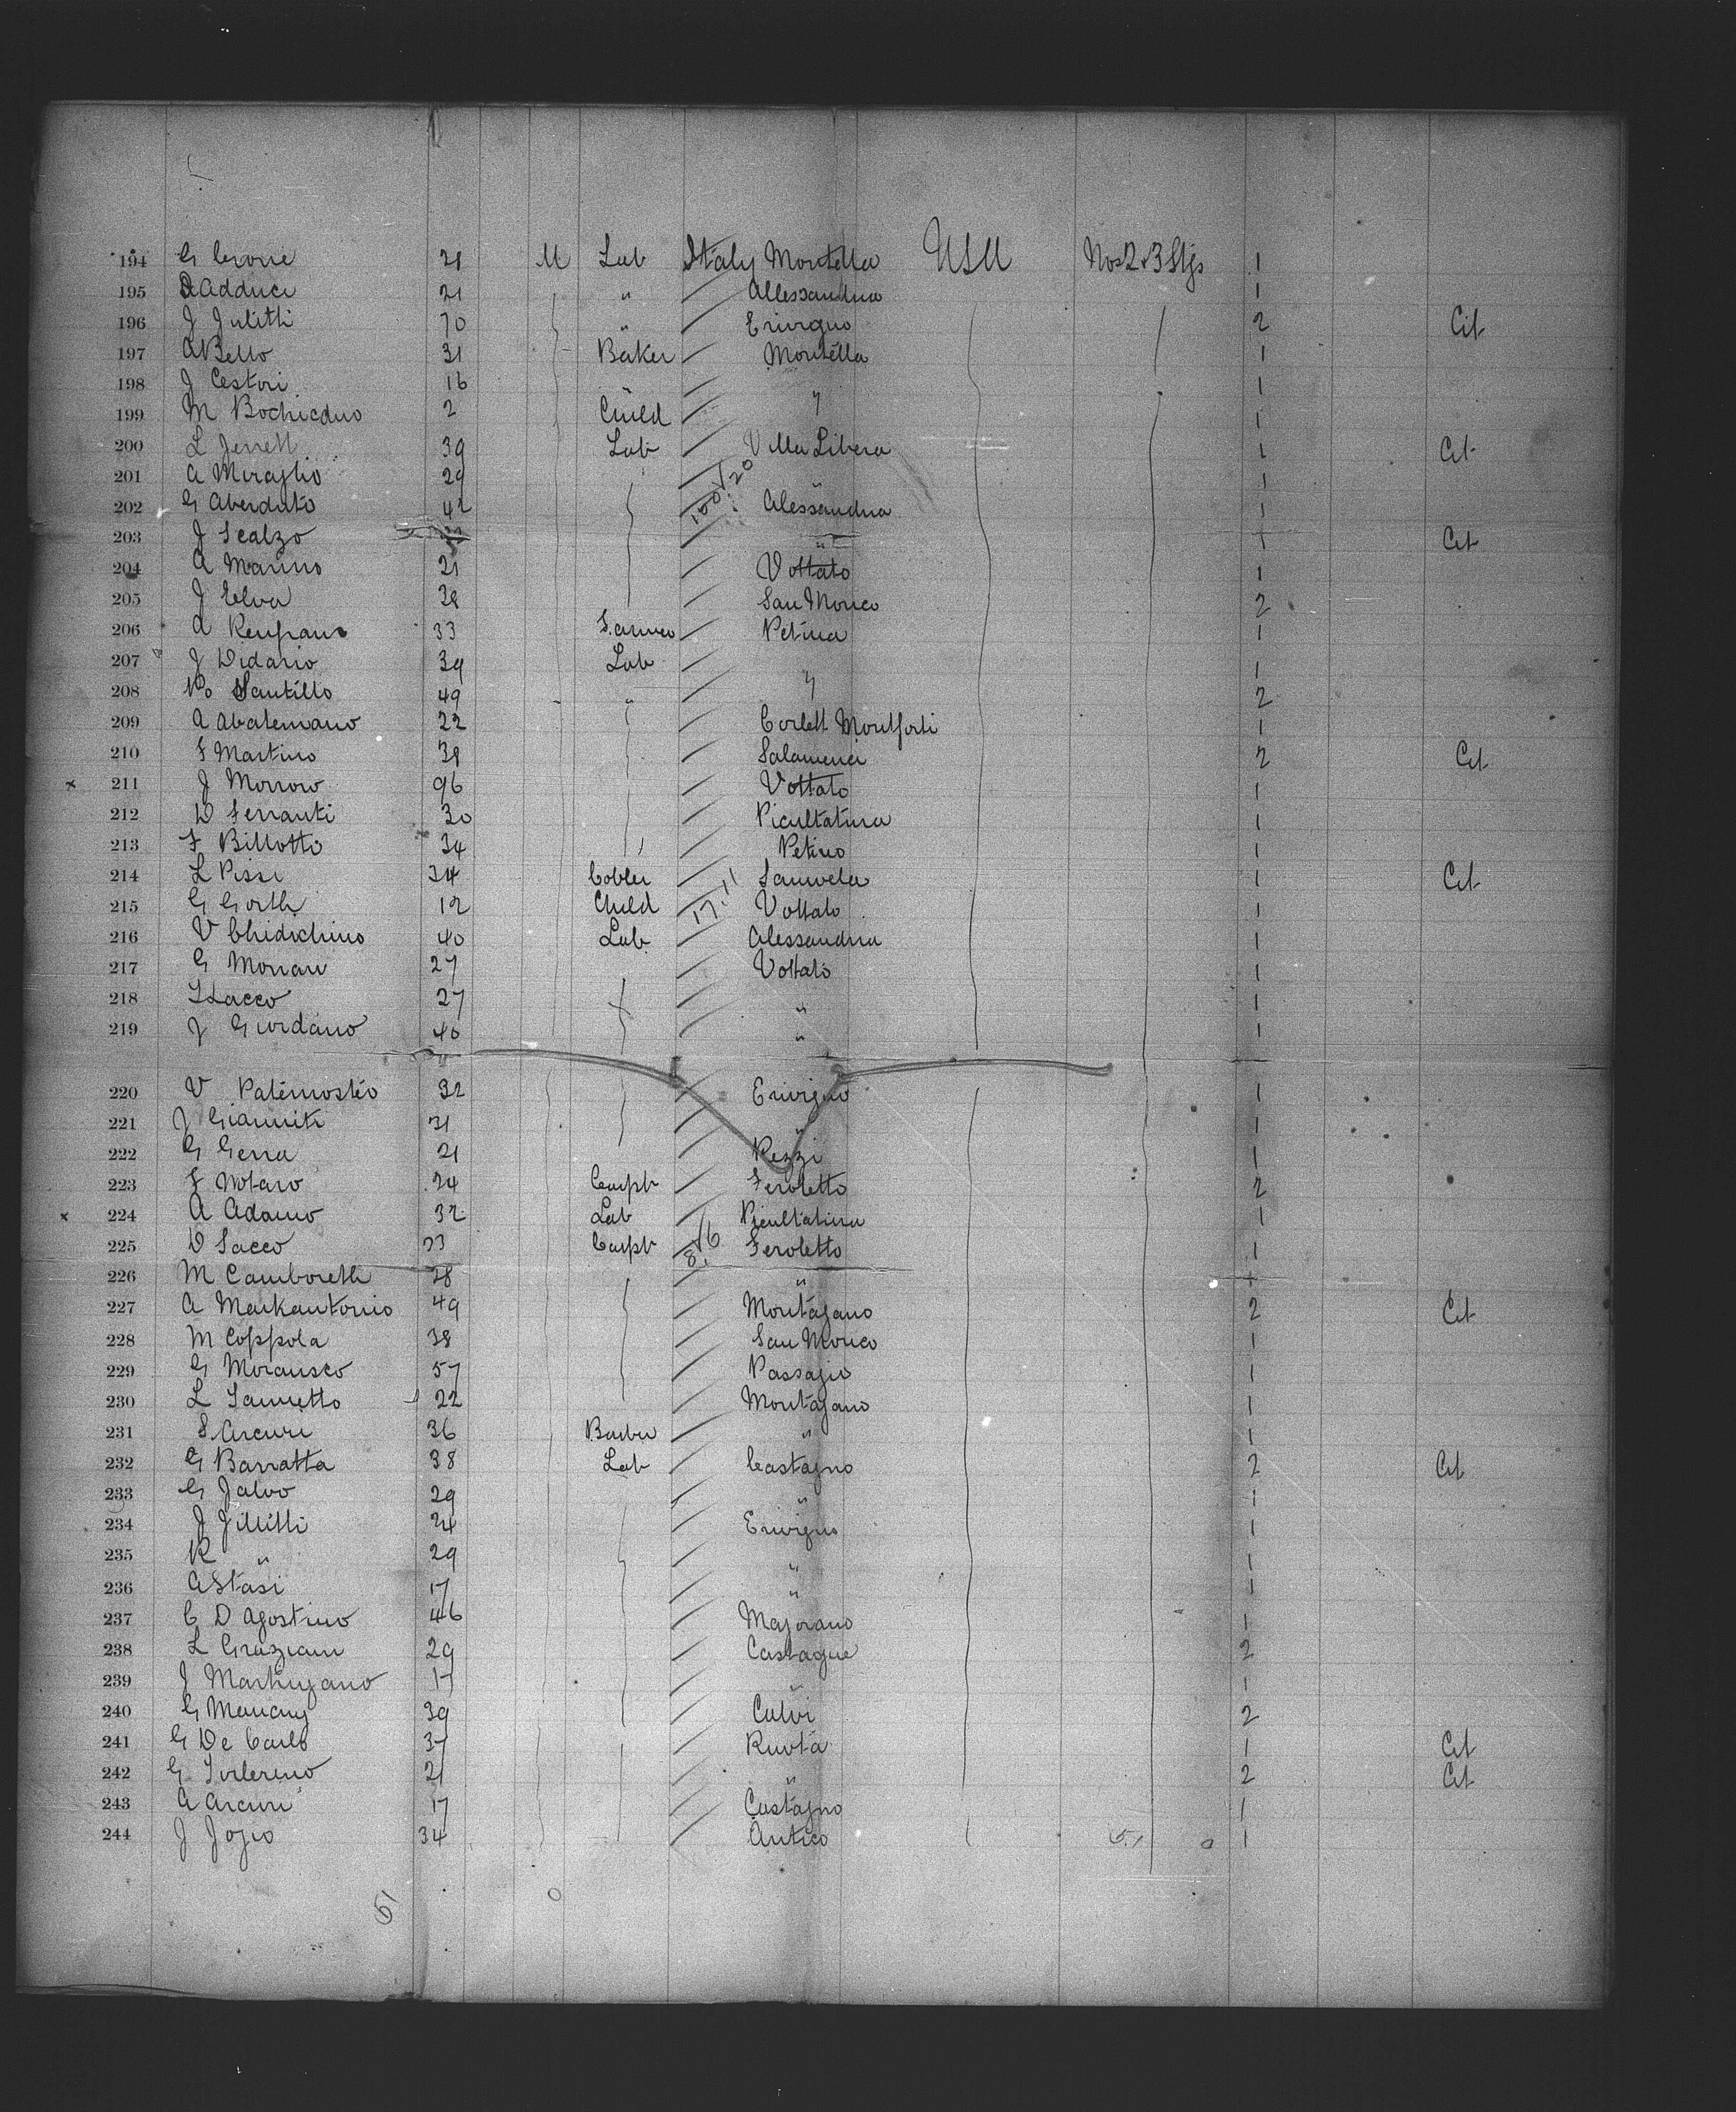 194 G Cerone 21 M Lab Italy Montella USA Nos 2 & 3 Stgs 1
195 D Adduci 21 " Allessandria 1
196 J Julitti 70 " Erivigno 2 Cit
197 A Bello 31 Baker Montella 1
198 J Cestori 16 1
199 M Bochicduo 2 Child " 1
200 L Jerrett 39 Lab Villa Libera 1 Cit
201 A Miraglio 29 " 1
202 G Aberduto 42 Alessandria 1
203 J Scalzo " 1 Cit
204 A Marino 21 Vottato 1
205 J Elva 38 San Monco 2
206 A 33 Petina 1
207 J Didario 39 Lab 1
208 Santillo 49 " " 2
209 A Abatemano 22 Corlett Montforti 1
210 F Martino 38 Salamenci 2 Cit
× 211 J Morrow 96 Vottato 1
212 D Ferranti 30 Picultatina 1
213 F Billotto 34 Petino 1
214 L Pissi 34 Cobler 1 Cit
215 G Gorth 12 Child 17.11 Vottato 1
216 V Chidichino 40 Lab Alessandria 1
217 G Monaw 27 Vottato 1
218 Sacco 27 " 1
219 J Giordano 40 " 1
220 V Paternosteo 32 Erivigno 1
221 J Gianniti 31 " 1
222 G Gerra 21 Pezzi 1
223 F Notaro 24 Carpt Feroletto 2
× 224 A Adamo 32 Lab Picultatina 1
225 D Sacco 23 Carpt Feroletto 1
226 M Camboreth 28 " 1
227 A Markantonio 49 Montagano 2 Cit
228 M Coppola 38 San Monco 1
229 G Moransco 57 Passagio 1
230 L Iannetto 22 Montagano 1
231 S Arcuri 36 Barber " 1
232 G Barratta 38 Lab Castagno 2 Cit
233 G Jalvo 29 " 1
234 J Jillitti 24 Erivigno 1
235 R " 29 " 1
236 A Stasi 17 " 1
237 C D Agostino 46 Majorano 1
238 L Graziani 29 Castagne 2
239 J Martingano 17 " 1
240 G Mancuy 39 Calvi 2
241 G De Carlo 37 Ruota 1 Cit
242 G 21 " 2 Cit
243 A Arcuri 17 Castagno 1
244 J Jozio 34 Antico 51 0 1
51 0